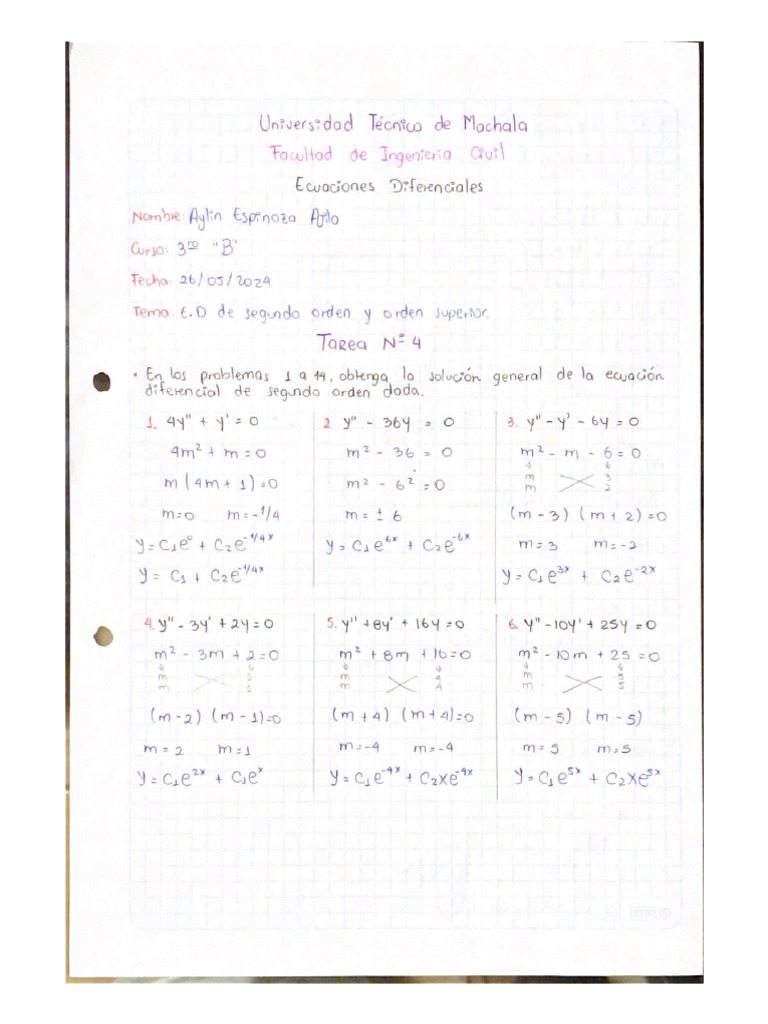 Universidad Técnico de Machala
Facultad de Ingenieria Civil
Ecuaciones Diferenciales
Nombre: Aylin Espinoza
Curso: 3ro "B"
Fecha: 26/05/2024
Tema: E.D de segundo orden y orden superior.
Tarea N° 4
• En los problemas 1 a 14, obtenga la solución general de la ecuación
diferencial de segundo orden dada.
1. 4y'' + y' = 0
4m² + m = 0
m (4m + 1) = 0
m=0 m=-1/4
y = C₁e⁰ + C₂e^-1/4x
y = C₁ + C₂e^-1/4x
2. y'' - 36y = 0
m² - 36 = 0
m² - 6² = 0
m = ± 6
y = C₁e^6x + C₂e^-6x
3. y'' - y' - 6y = 0
m² - m - 6 = 0
m 3
m 2
(m - 3) (m + 2) = 0
m = 3 m = -2
y = C₁e^3x + C₂e^-2x
4. y'' - 3y' + 2y = 0
m² - 3m + 2 = 0
m 2
m 1
(m - 2) (m - 1) = 0
m = 2 m = 1
y = C₁e^2x + C₁e^x
5. y'' + 8y' + 16y = 0
m² + 8m + 16 = 0
m 4
m 4
(m + 4) (m + 4) = 0
m = -4 m = -4
y = C₁e^-4x + C₂xe^-4x
6. y'' - 10y' + 25y = 0
m² - 10m + 25 = 0
m 5
m 5
(m - 5) (m - 5)
m = 5 m = 5
y = C₁e^5x + C₂xe^5x